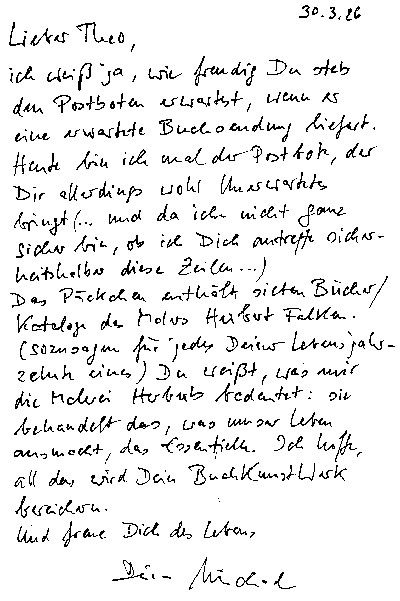 30.3.26
Lieber Theo,
ich weiß ja, wie freudig Du stets
den Postboten erwartest, wenn er
eine erwartete Buchsendung liefert.
Heute bin ich mal der Postbote, der
Dir allerdings wohl Unerwartetes
bringt (... und da ich nicht ganz
sicher bin, ob ich Dich antreffe sicher-
heitshalber diese Zeilen...)
Das Päckchen enthält sieben Bücher/
Kataloge des Malers Herbert Falken.
(sozusagen für jedes Deiner Lebensjahr-
zehnte eines) Du weißt, was mir
die Malerei Herberts bedeutet: sie
behandelt das, was unser Leben
ausmacht, das Essentielle. Ich hoffe,
all das wird Dein BuchKunstWerk
bereichern.
Und freue Dich des Lebens,
Dein Michael